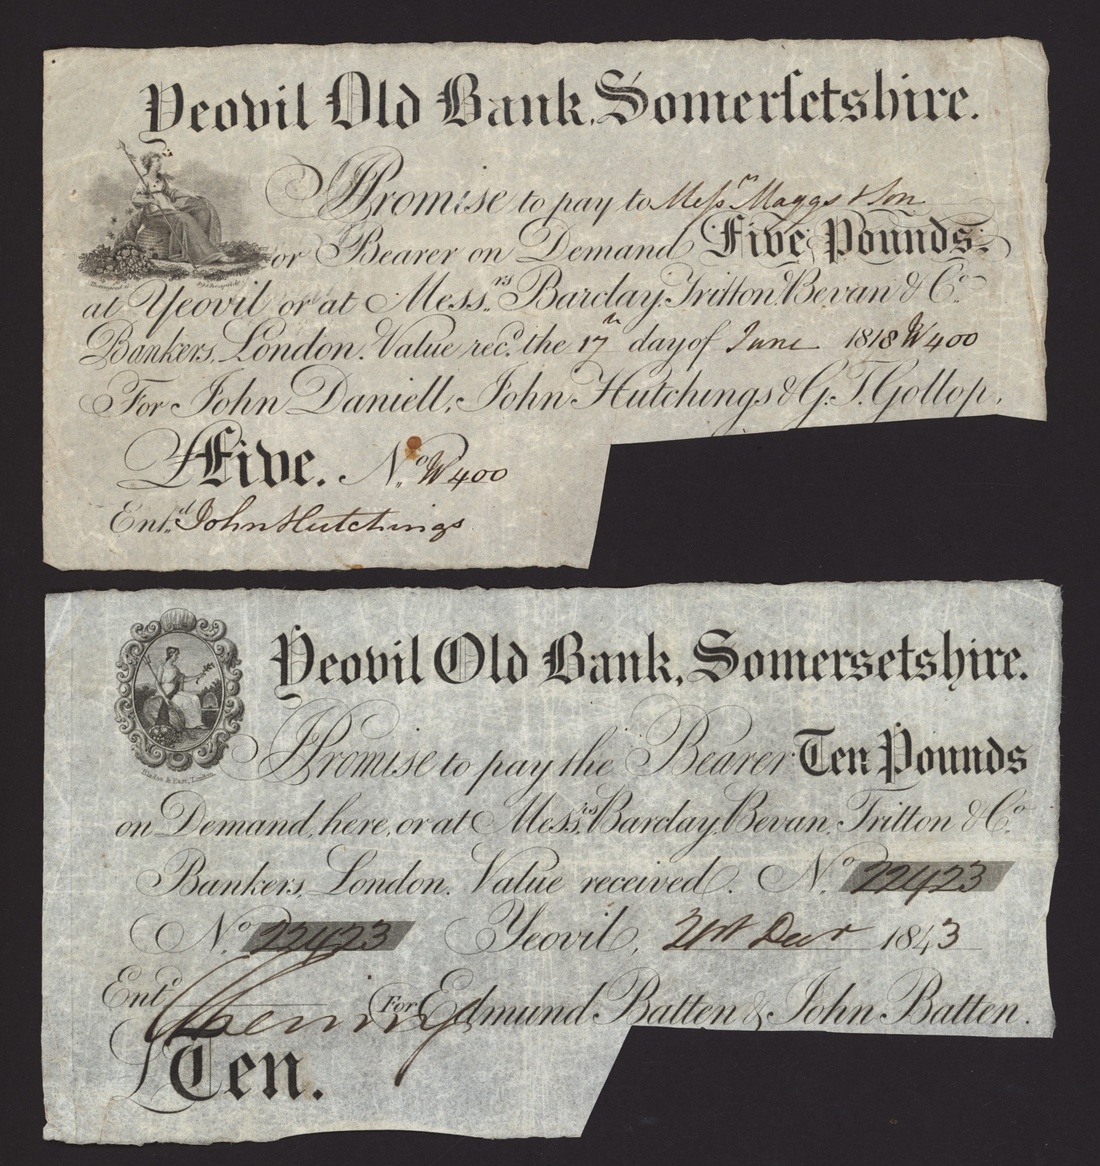 Yeovil Old Bank, Somerſetshire.
I Promise to pay to Meſsrs Maggs & Son
or Bearer on Demand Five Pounds
at Yeovil or at Messrs. Barclay, Tritton, Bevan & Co.
Bankers, London. Value recd. the 17th day of June 1818 W400
For John Daniell, John Hutchings & G. T. Gollop,
£Five. No. W400
Entd. John Hutchings
Yeovil Old Bank, Somersetshire.
I Promise to pay the Bearer Ten Pounds
on Demand, here, or at Messrs. Barclay, Bevan, Tritton & Co.
Bankers, London. Value received. No. 22423
No. 22423 Yeovil, 21st Decr 1843
Entd
For Edmund Batten & John Batten.
£Ten.